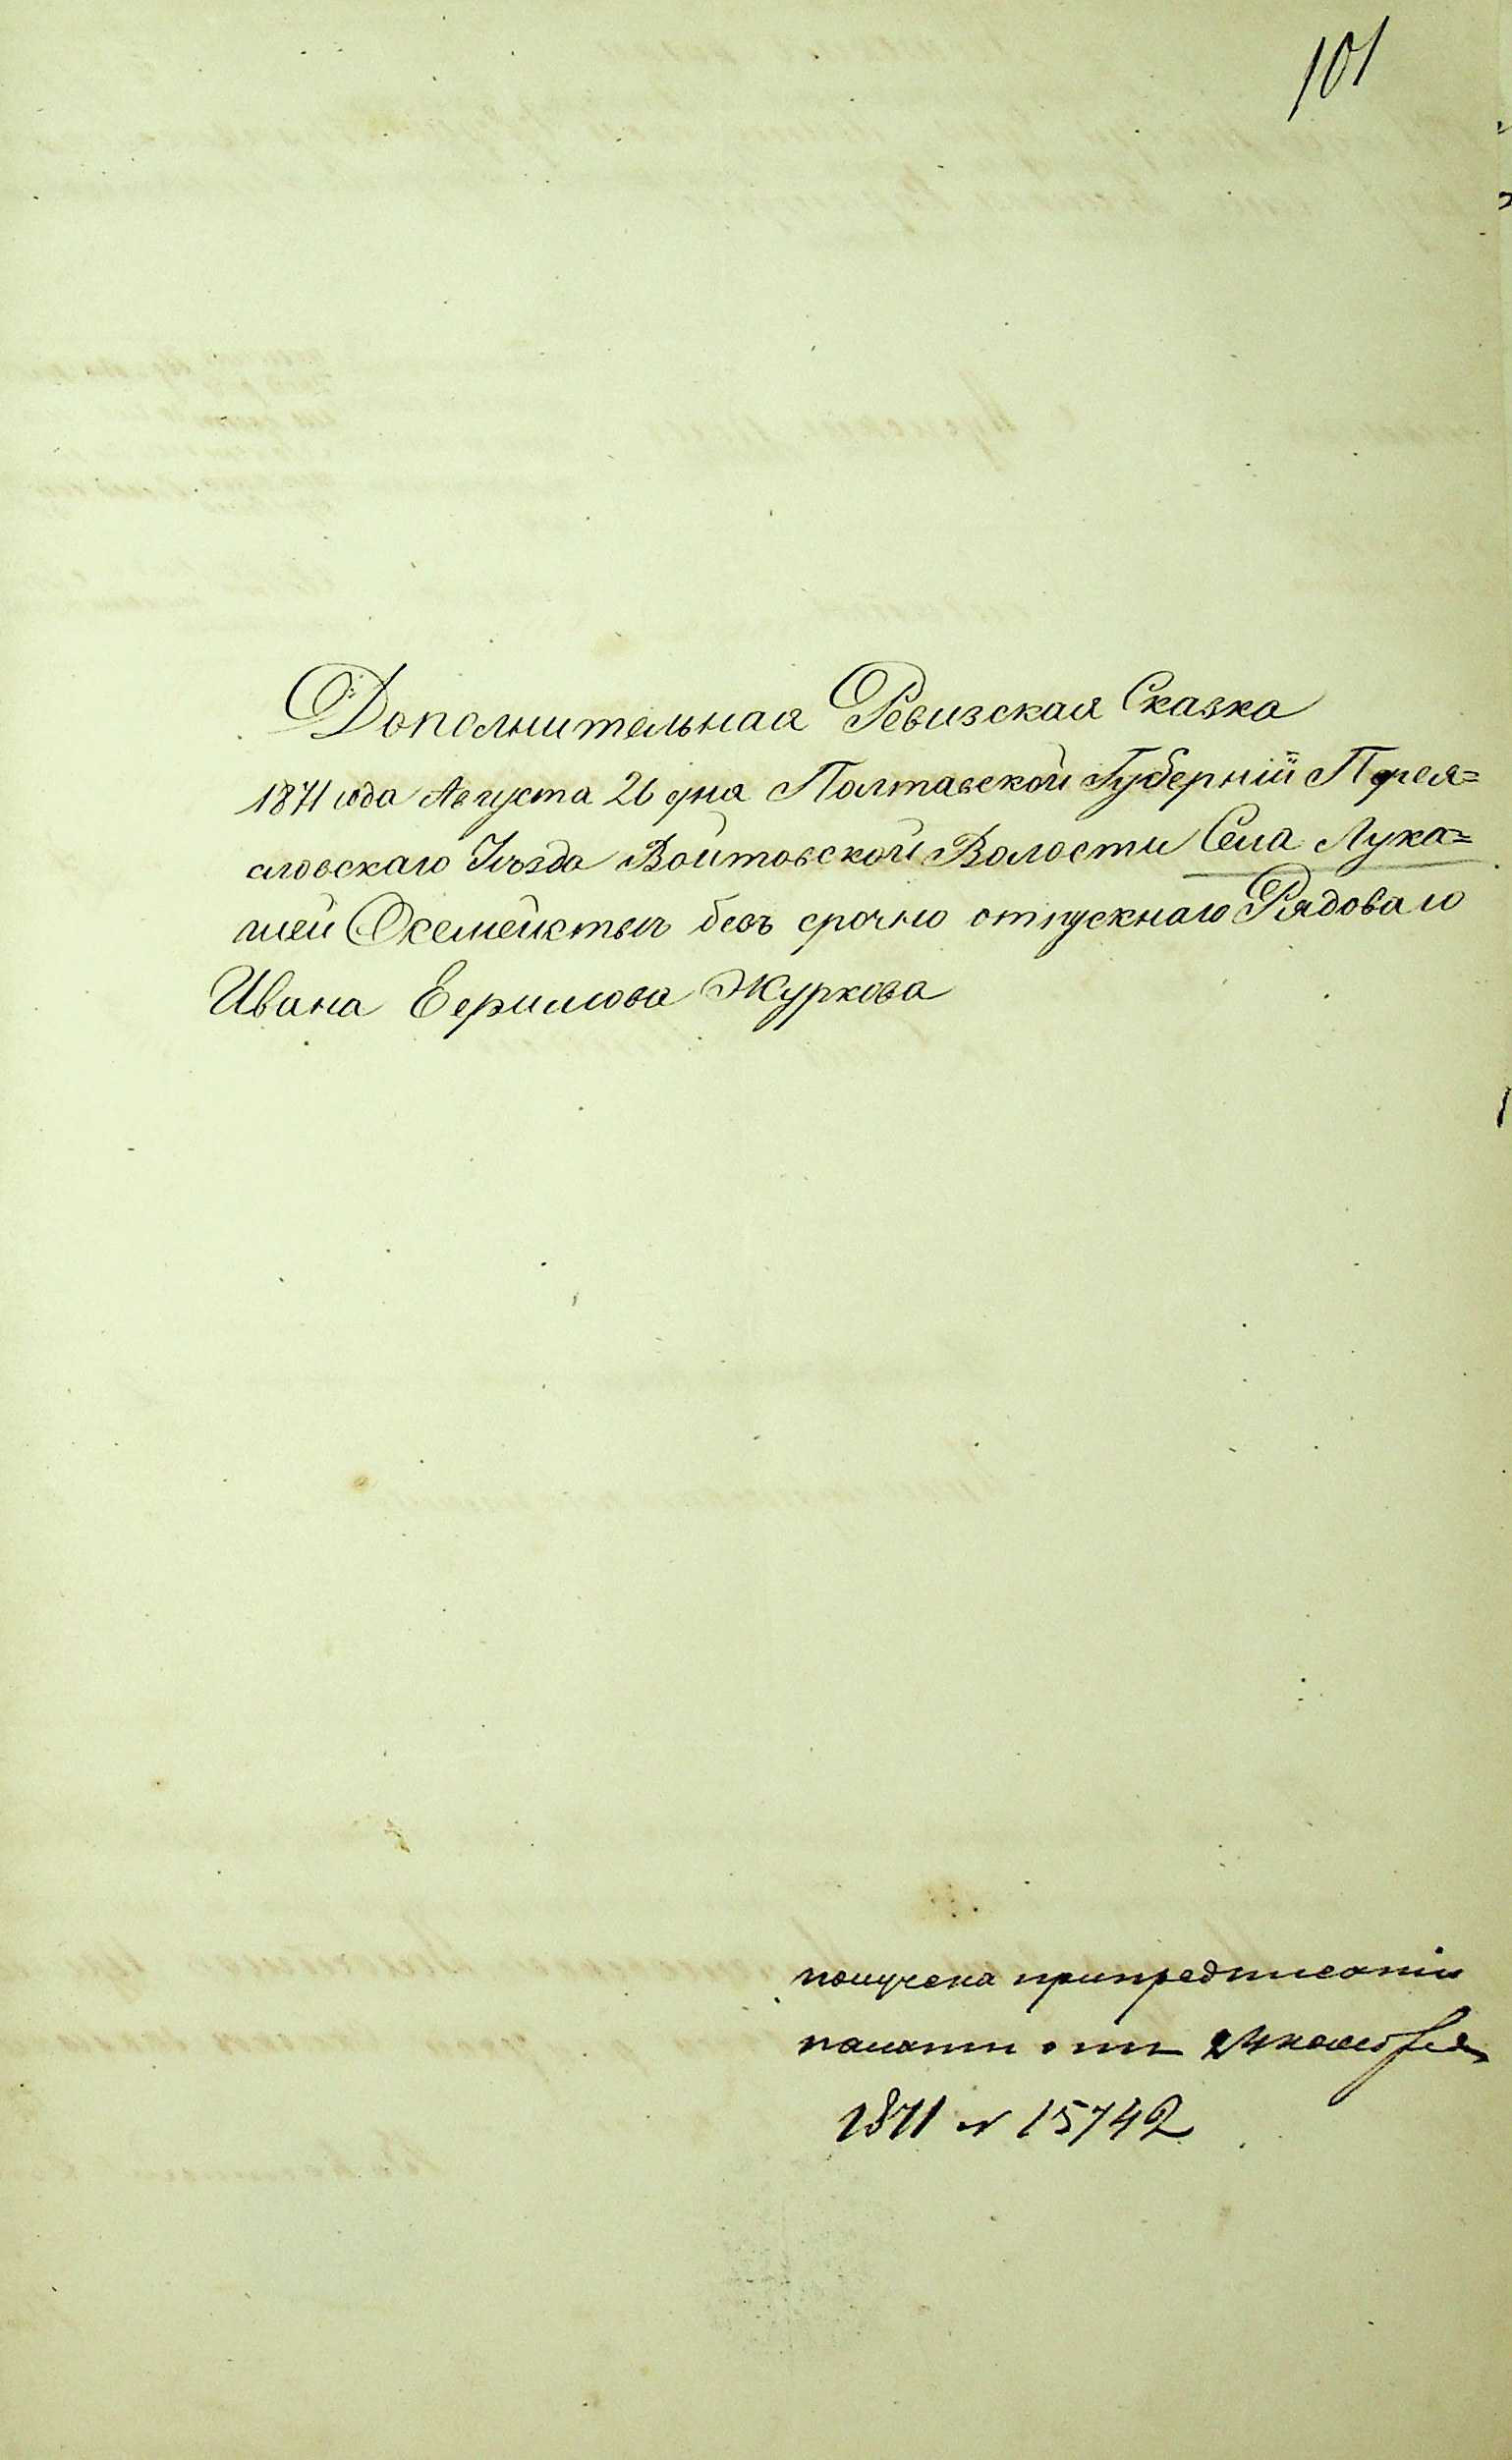 101
Дополнительная Ревизская Сказка
1871 года Августа 26 дня Полтавской Губерніи Перея=
словскаго Уѣзда Войтовской Волости Села Лука=
шей Осемействѣ безъ срочно отпускнаго Рядоваго
Ивана Ефимова Журкова
получена припредписаніи
палаты отъ 24 ноября
1871 № 15742